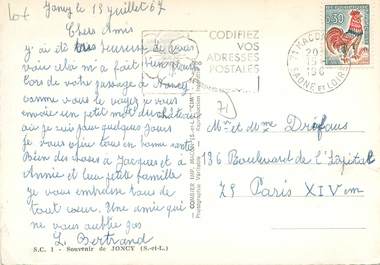 Joncy le 13 juillet 67
Chers Amis
y'ai été très heureuse de vous
voir cela m'a fait bien plaisir
Lors de votre passage à Joncy
comme vous le voyez je vous
envoie un petit mot du château
où je suis pour quelques jours
je vous quitte tous en bonne santé
Bien des roses à Jacques et à
Annie et leur petite famille
je vous embrasse tous de
tout cœur. Une amie qui
ne vous oublie pas
L. Bertrand
S.C. 1 - Souvenir de JONCY (S.-et-L.)
COMBIER IMP. MACON (S.-et-L.) "CIM"
CODIFIEZ
VOS
ADRESSES
POSTALES
71 MACON
SAONE ET LOIRE
0,30
71
Mr et Mme Dreifous
136 Boulevard de l'Hôpital
75 Paris XIVem